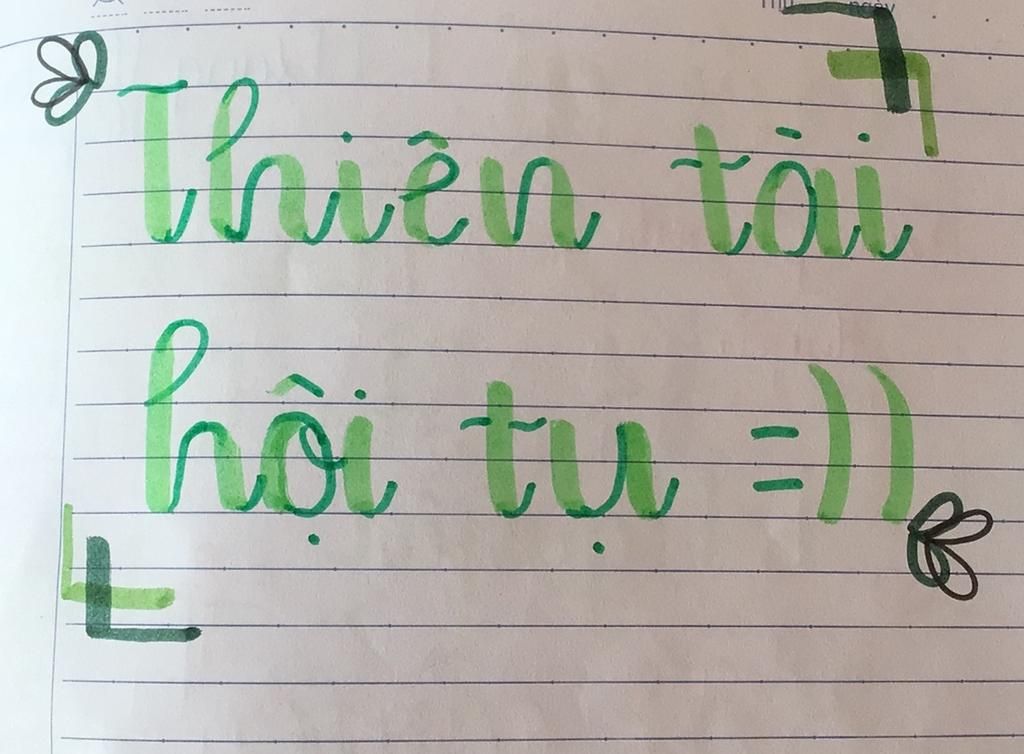 Thiên tài
hội tụ =))